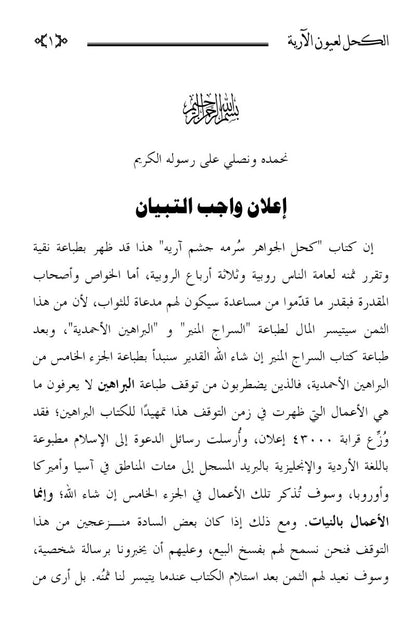 الكحل لعيون الآرية ﴿١﴾
بسم الله الرحمن الرحيم
نحمده ونصلي على رسوله الكريم
إعلان واجب التبيان
إن كتاب "كحل الجواهر سُرمه جشم آريه" هذا قد ظهر بطباعة نقية
وتقرر ثمنه لعامة الناس روبية وثلاثة أرباع الروبية، أما الخواص وأصحاب
المقدرة فبقدر ما قدّموا من مساعدة سيكون لهم مدعاة للثواب، لأن من هذا
الثمن سيتيسر المال لطباعة "السراج المنير" و "البراهين الأحمدية"، وبعد
طباعة كتاب السراج المنير إن شاء الله القدير سنبدأ بطباعة الجزء الخامس من
البراهين الأحمدية، فالذين يضطربون من توقف طباعة البراهين لا يعرفون ما
هي الأعمال التي ظهرت في زمن التوقف هذا تمهيدًا للكتاب البراهين؛ فقد
وُزِّع قرابة ٤٣٠٠٠ إعلان، وأُرسلت رسائل الدعوة إلى الإسلام مطبوعة
باللغة الأردية والإنجليزية بالبريد المسجل إلى مئات المناطق في آسيا وأميركا
وأوروبا، وسوف تُذكر تلك الأعمال في الجزء الخامس إن شاء الله؛ وإنما
الأعمال بالنيات. ومع ذلك إذا كان بعض السادة منـزعجين من هذا
التوقف فنحن نسمح لهم بفسخ البيع، وعليهم أن يخبرونا برسالة شخصية،
وسوف نعيد لهم الثمن بعد استلام الكتاب عندما يتيسر لنا ثمنُه. بل أرى من